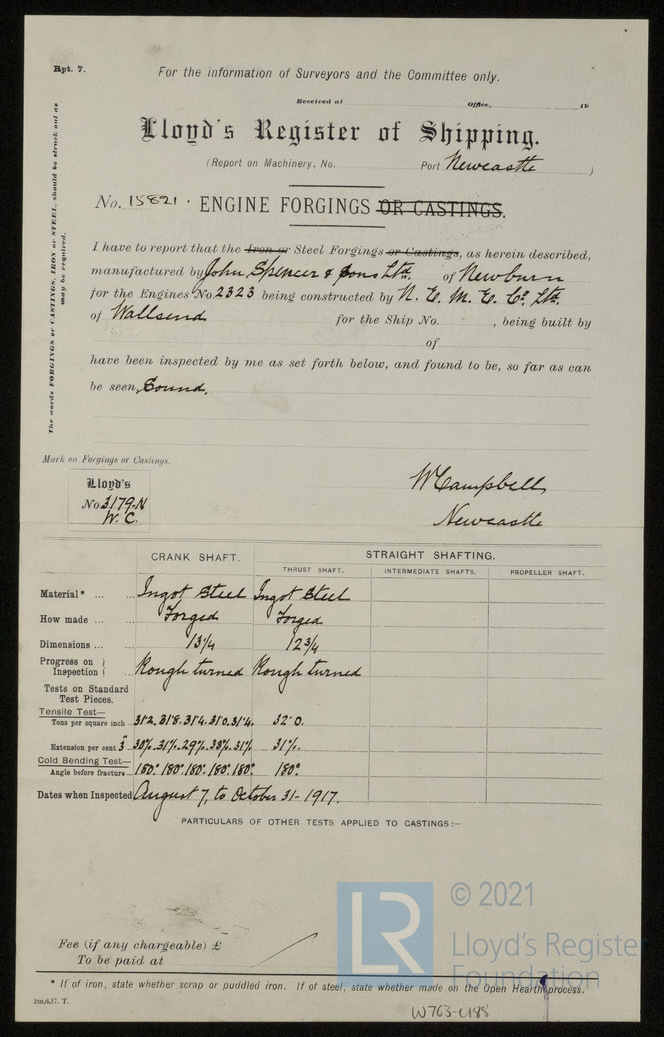 Rpt. 7.
For the information of Surveyors and the Committee only.
Received at Office, 19
Lloyd's Register of Shipping.
(Report on Machinery, No. Port Newcastle )
No. 15821. ENGINE FORGINGS OR CASTINGS.
The words FORGINGS or CASTINGS, IRON or STEEL, should be struck out as
may be required.
I have to report that the Iron or Steel Forgings or Castings, as herein described,
manufactured by John Spencer & Sons Ltd. of Newburn
for the Engines No. 2323 being constructed by N. E. M. E. Co. Ltd.
of Wallsend for the Ship No. , being built by
of
have been inspected by me as set forth below, and found to be, so far as can
be seen, Sound.
Mark on Forgings or Castings.
Lloyd's
No 3179-N
W. C.
W Campbell
Newcastle
CRANK SHAFT. STRAIGHT SHAFTING.
THRUST SHAFT. INTERMEDIATE SHAFTS. PROPELLER SHAFT.
Material* ... ... Ingot Steel Ingot Steel
How made ... ... Forged Forged
Dimensions ... ... 13 1/4 12 3/4
Progress on } Inspection } ... Rough turned Rough turned
Tests on Standard
Test Pieces.
Tensile Test—
Tons per square inch ... 31.2. 31.8. 31.4. 31.0. 31.4. 32.0.
Extension per cent 3" 30%. 31%. 29%. 30%. 31%. 31%.
Cold Bending Test—
Angle before fracture... 180° 180° 180° 180° 180° 180°
Dates when Inspected August 7, to October 31 - 1917.
PARTICULARS OF OTHER TESTS APPLIED TO CASTINGS :—
© 2021
LR
Lloyd's Register
Foundation
Fee (if any chargeable) £
To be paid at
* If of iron, state whether scrap or puddled iron. If of steel, state whether made on the Open Hearth process.
2m,6,17. T.
W763-0188